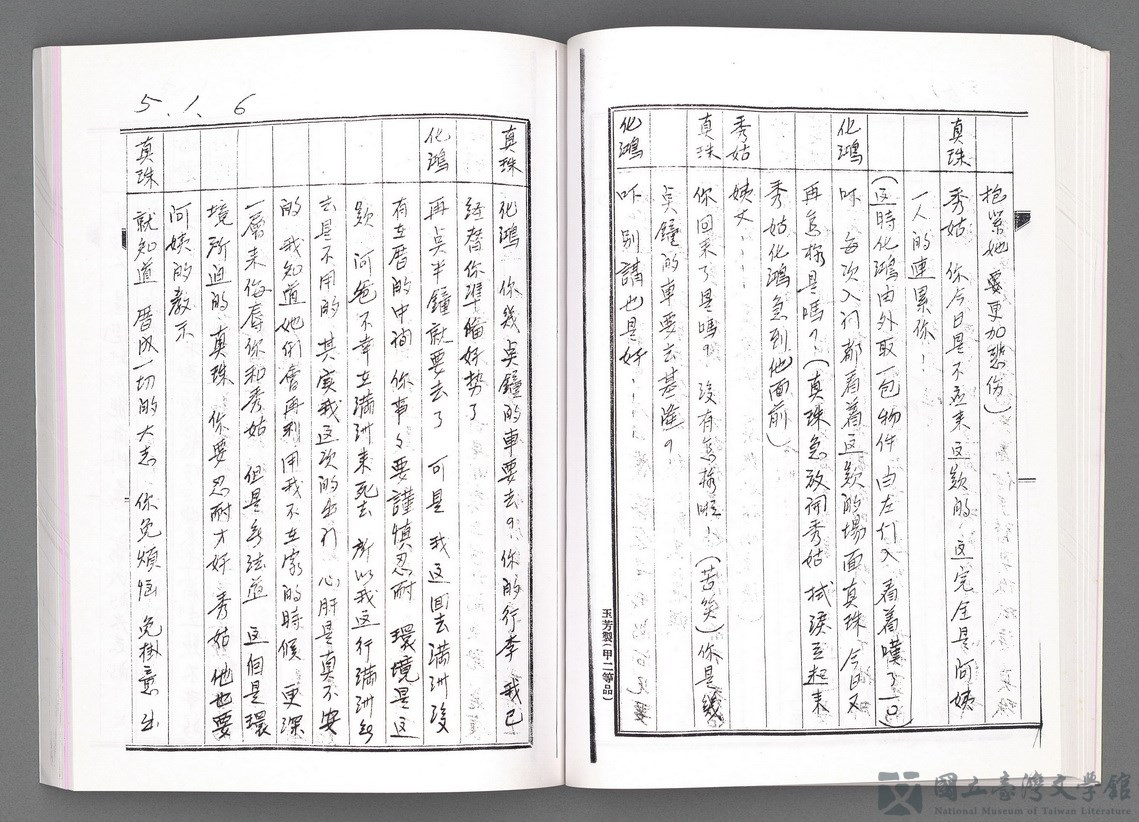 抱緊她 要更加悲伤）
真珠 秀姑 你今日是不應来這欵的 這完全是阿姨
一人的連累你！
（這時化鴻由外取一包物件 由左行入 看着嘆了一口）
化鴻 吓 每次入门都看着這欵的場面真珠 今日又
再怎樣是嗎？（真珠急放開秀姑 拭淚立起来
秀姑化鴻急到他面前）
秀姑 姨丈！！！
真珠 你回来了是嗎？ 沒有怎樣啦！（苦笑）你是幾
点鐘的車要去基隆？
化鴻 吓 别講也是好！！！
玉芳製（甲二等品）
5.1.6
真珠 化鴻 你幾点鐘的車要去？你的行李 我已
经替你準偹好势了
化鴻 再点半鐘就要去了 可是 我這回去满洲後
有在厝的中间 你事々要謹慎忍耐 環境是這
欵 阿爸不幸在满洲来死去 所以我這行满洲
去是不用的 其实我這次的出行 心肝是真不安
的 我知道她们會再利用我不在家的時候 更深
一層来侮辱你和秀姑 但是無法道 這個是環
境所迫的 真珠 你要忍耐才好 秀姑 他也要
阿姨的教示
真珠 就知道 厝内一切的大志 你免煩惱 免掛意 出
國立臺灣文學館
National Museum of Taiwan Literature